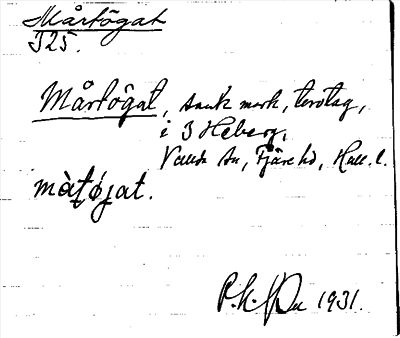 Mårtögat
I25.
Mårtögat, sank mark, torvtag,
i 3 Heberg,
Vallda sn, Fjäre hd, Hall. l.
màtøjat.
P.k. 1931.